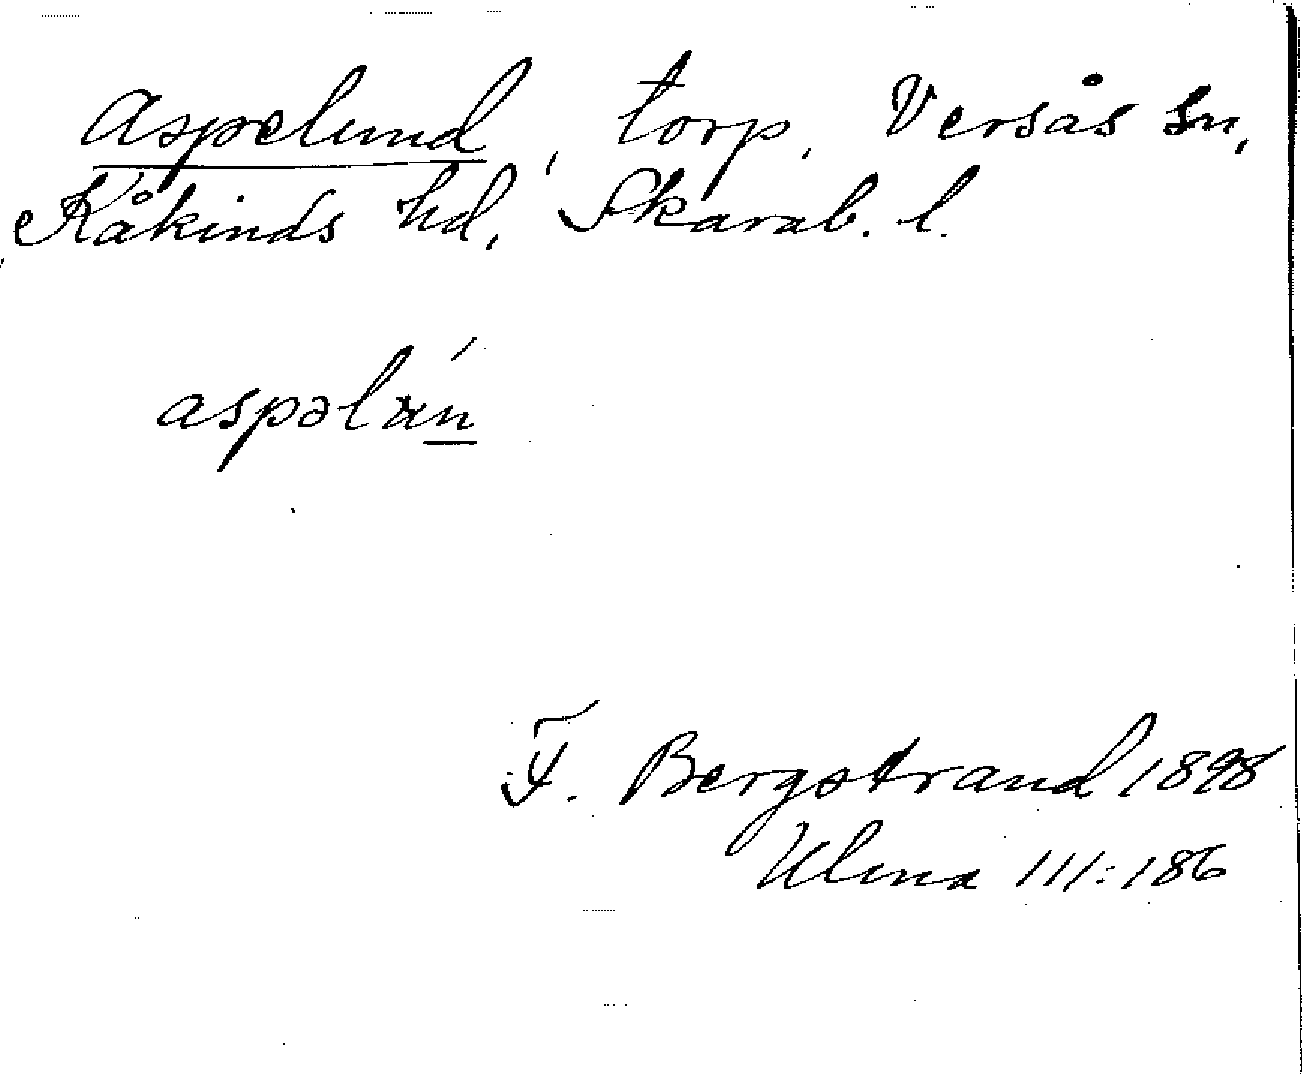 Aspelund, torp, Versås sn,
Kåkinds hd, Skarab. l.
aspəlán
F. Bergstrand 1898
Ulma 111:186